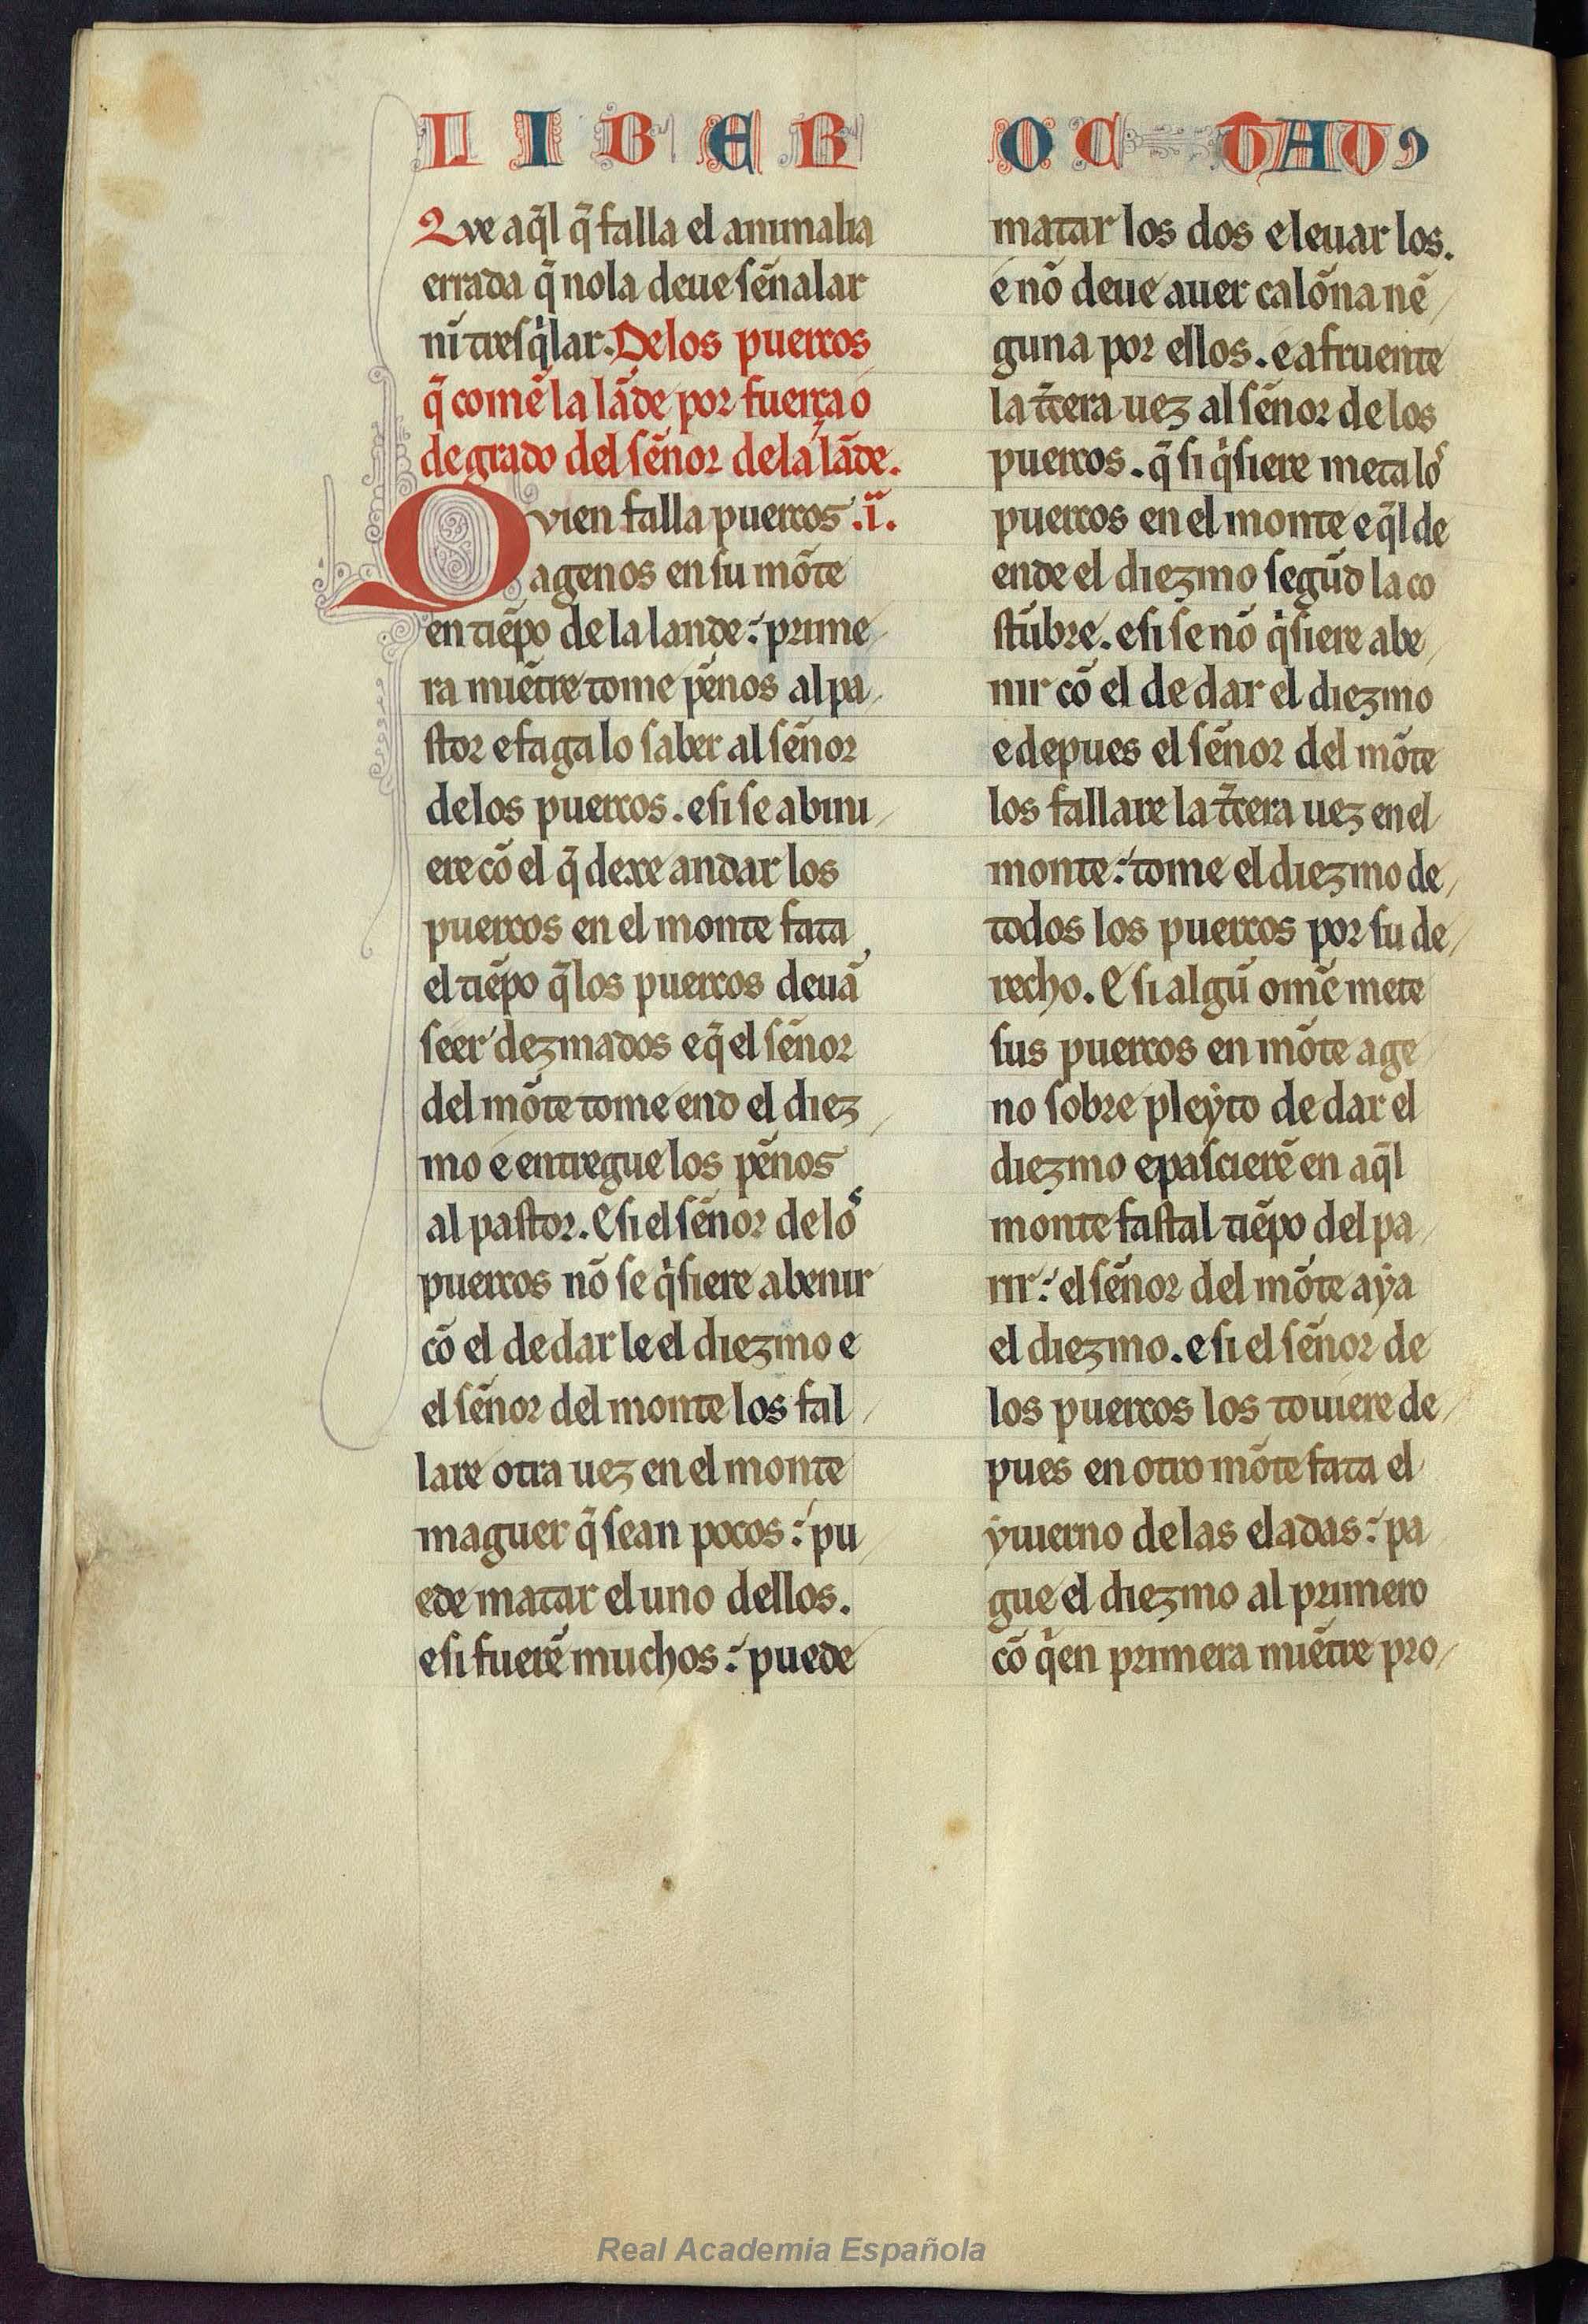 LIBER
OCTAUꝯ
Que aq̃l q̃ falla el animalia
errada q̃ no la deue sẽnalar
nĩ tresq̃lar. De los puercos
q̃ comẽ la lãde por fuerça o
de grado del sẽnor de la lãde.
Quien falla puercos .ii.
agenos en su mõte
en tiẽpo de la lande: prime
ra miẽtre tome pẽnos al pa
stor e faga lo saber al sẽnor
de los puercos. e si se abini
ere cõ el q̃ dexe andar los
puercos en el monte fata
el tiẽpo q̃ los puercos deuã
seer dezmados e q̃ el sẽnor
del mõte tome end el diez
mo e entregue los pẽnos
al pastor. E si el sẽnor de los
puercos nõ se q̃siere abenir
cõ el de dar le el diezmo e
el sẽnor del monte los fal
lare otra uez en el monte
maguer q̃ sean pocos: pu
ede matar el uno dellos.
e si fuerẽ muchos: puede
matar los dos e leuar los.
e nõ deue auer calõna nẽ
guna por ellos. e afruente
la t̃cera uez al sẽnor de los
puercos. q̃ si q̃siere meta los
puercos en el monte e q̃l de
ende el diezmo segũd la co
stũbre. e si se nõ q̃siere abe
nir cõ el de dar el diezmo
e depues el sẽnor del mõte
los fallare la t̃cera uez en el
monte: tome el diezmo de
todos los puercos por su de
recho. E si algũ omẽ mete
sus puercos en mõte age
no sobre pleyto de dar el
diezmo e pascierẽ en aq̃l
monte fastal tiẽpo del pa
rir: el sẽnor del mõte aya
el diezmo. e si el sẽnor de
los puercos los touiere de
pues en otro mõte fata el
yuierno de las eladas: pa
gue el diezmo al primero
cõ q̃en primera miẽtre pro
Real Academia Española